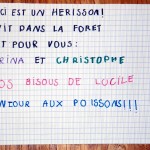 CI EST UN HERISSON!
VIT DANS LA FORET
T POUR VOUS:
RINA ET CHRISTOPHE
OS BISOUS DE LUCILE
NTOUR AUX POISSONS!!!